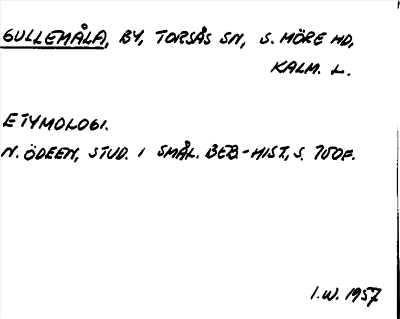 GULLEMÅLA, BY, TORSÅS SN, S. MÖRE HD,
KALM. L.
ETYMOLOGI.
N. ÖDEEN, STUD. I SMÅL. BEB.-HIST, S. 150F.
I.W. 1957